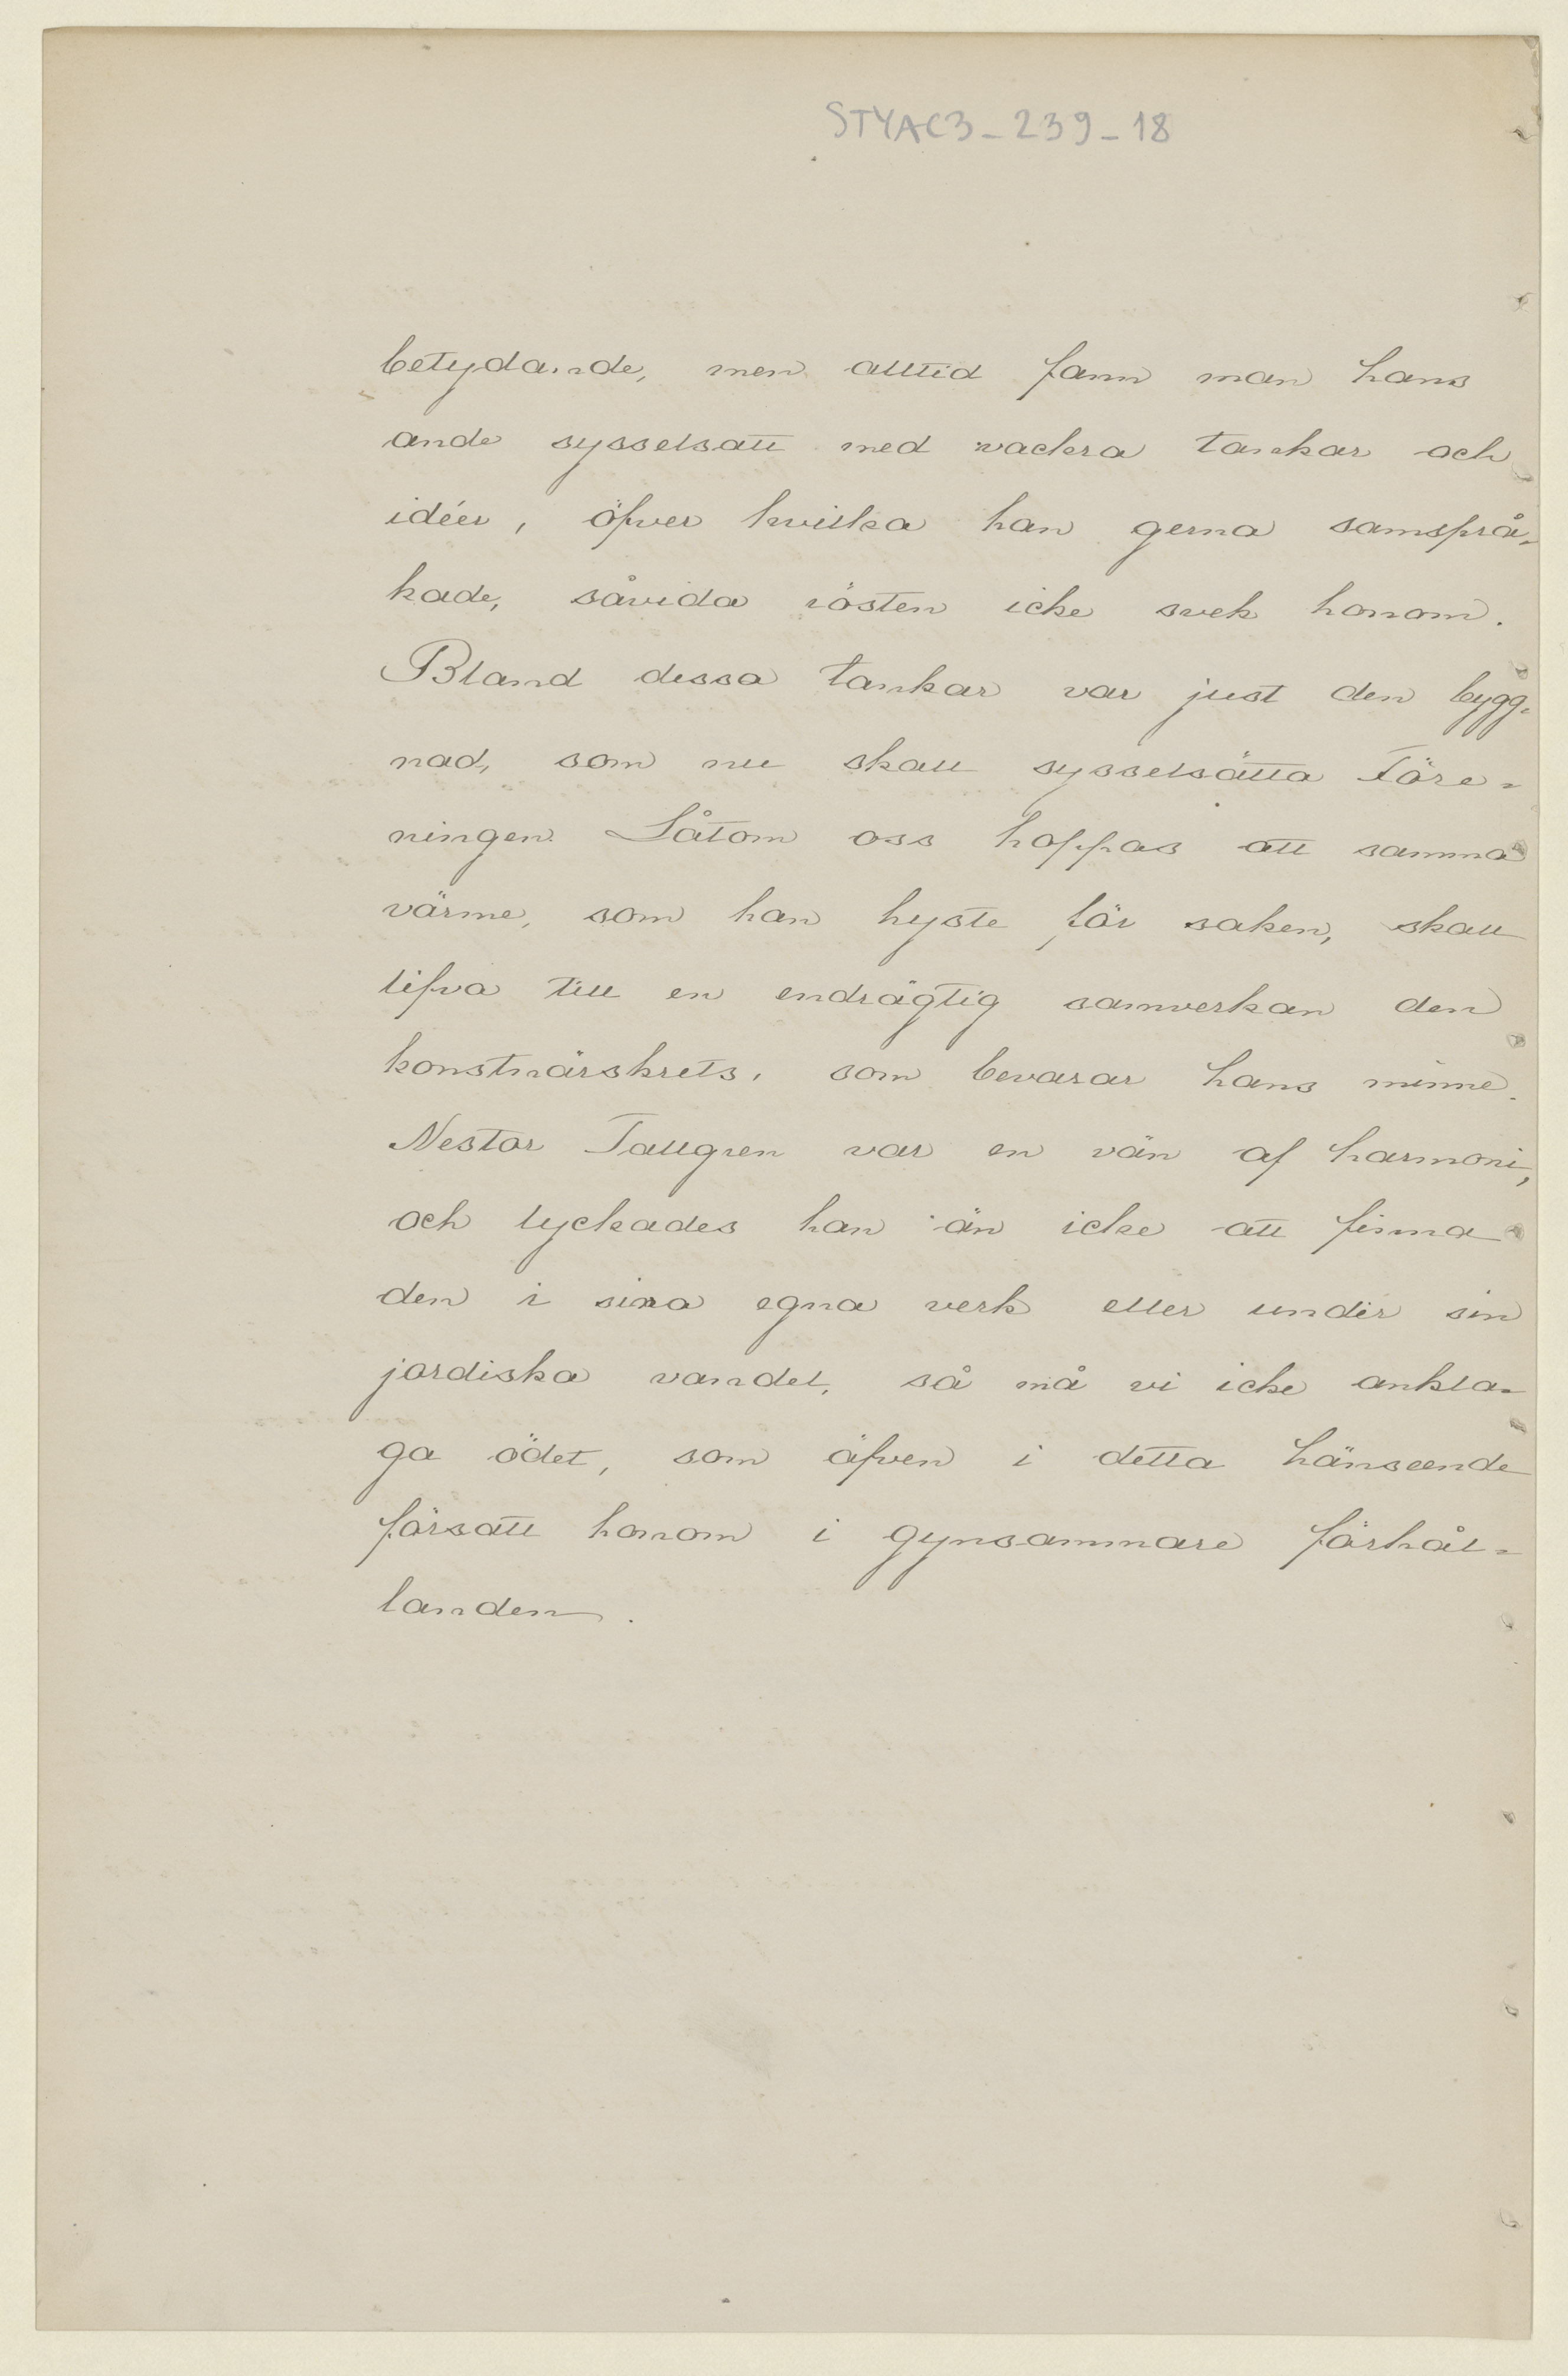 STYAC3_239_18
betydande, men alltid fann man hans
ande sysselsatt med vackra tankar och
idéer, öfver hvilka han gerna samsprå-
kade, såvida rösten icke svek honom.
Bland dessa tankar var just den bygg-
nad, som nu skall sysselsätta Före-
ningen. Låtom oss hoppas att samma
värme, som han hyste för saken, skall
lifva till en endrägtig samverkan den
konstnärskrets, som bevarar hans minne.
Nestor Tallgren var en vän af harmoni,
och lyckades han än icke att finna
den i sina egna verk eller under sin
jordiska vandel, så må vi icke ankla-
ga ödet, som äfven i detta hänseende
försatt honom i gynsammare förhål-
landen.